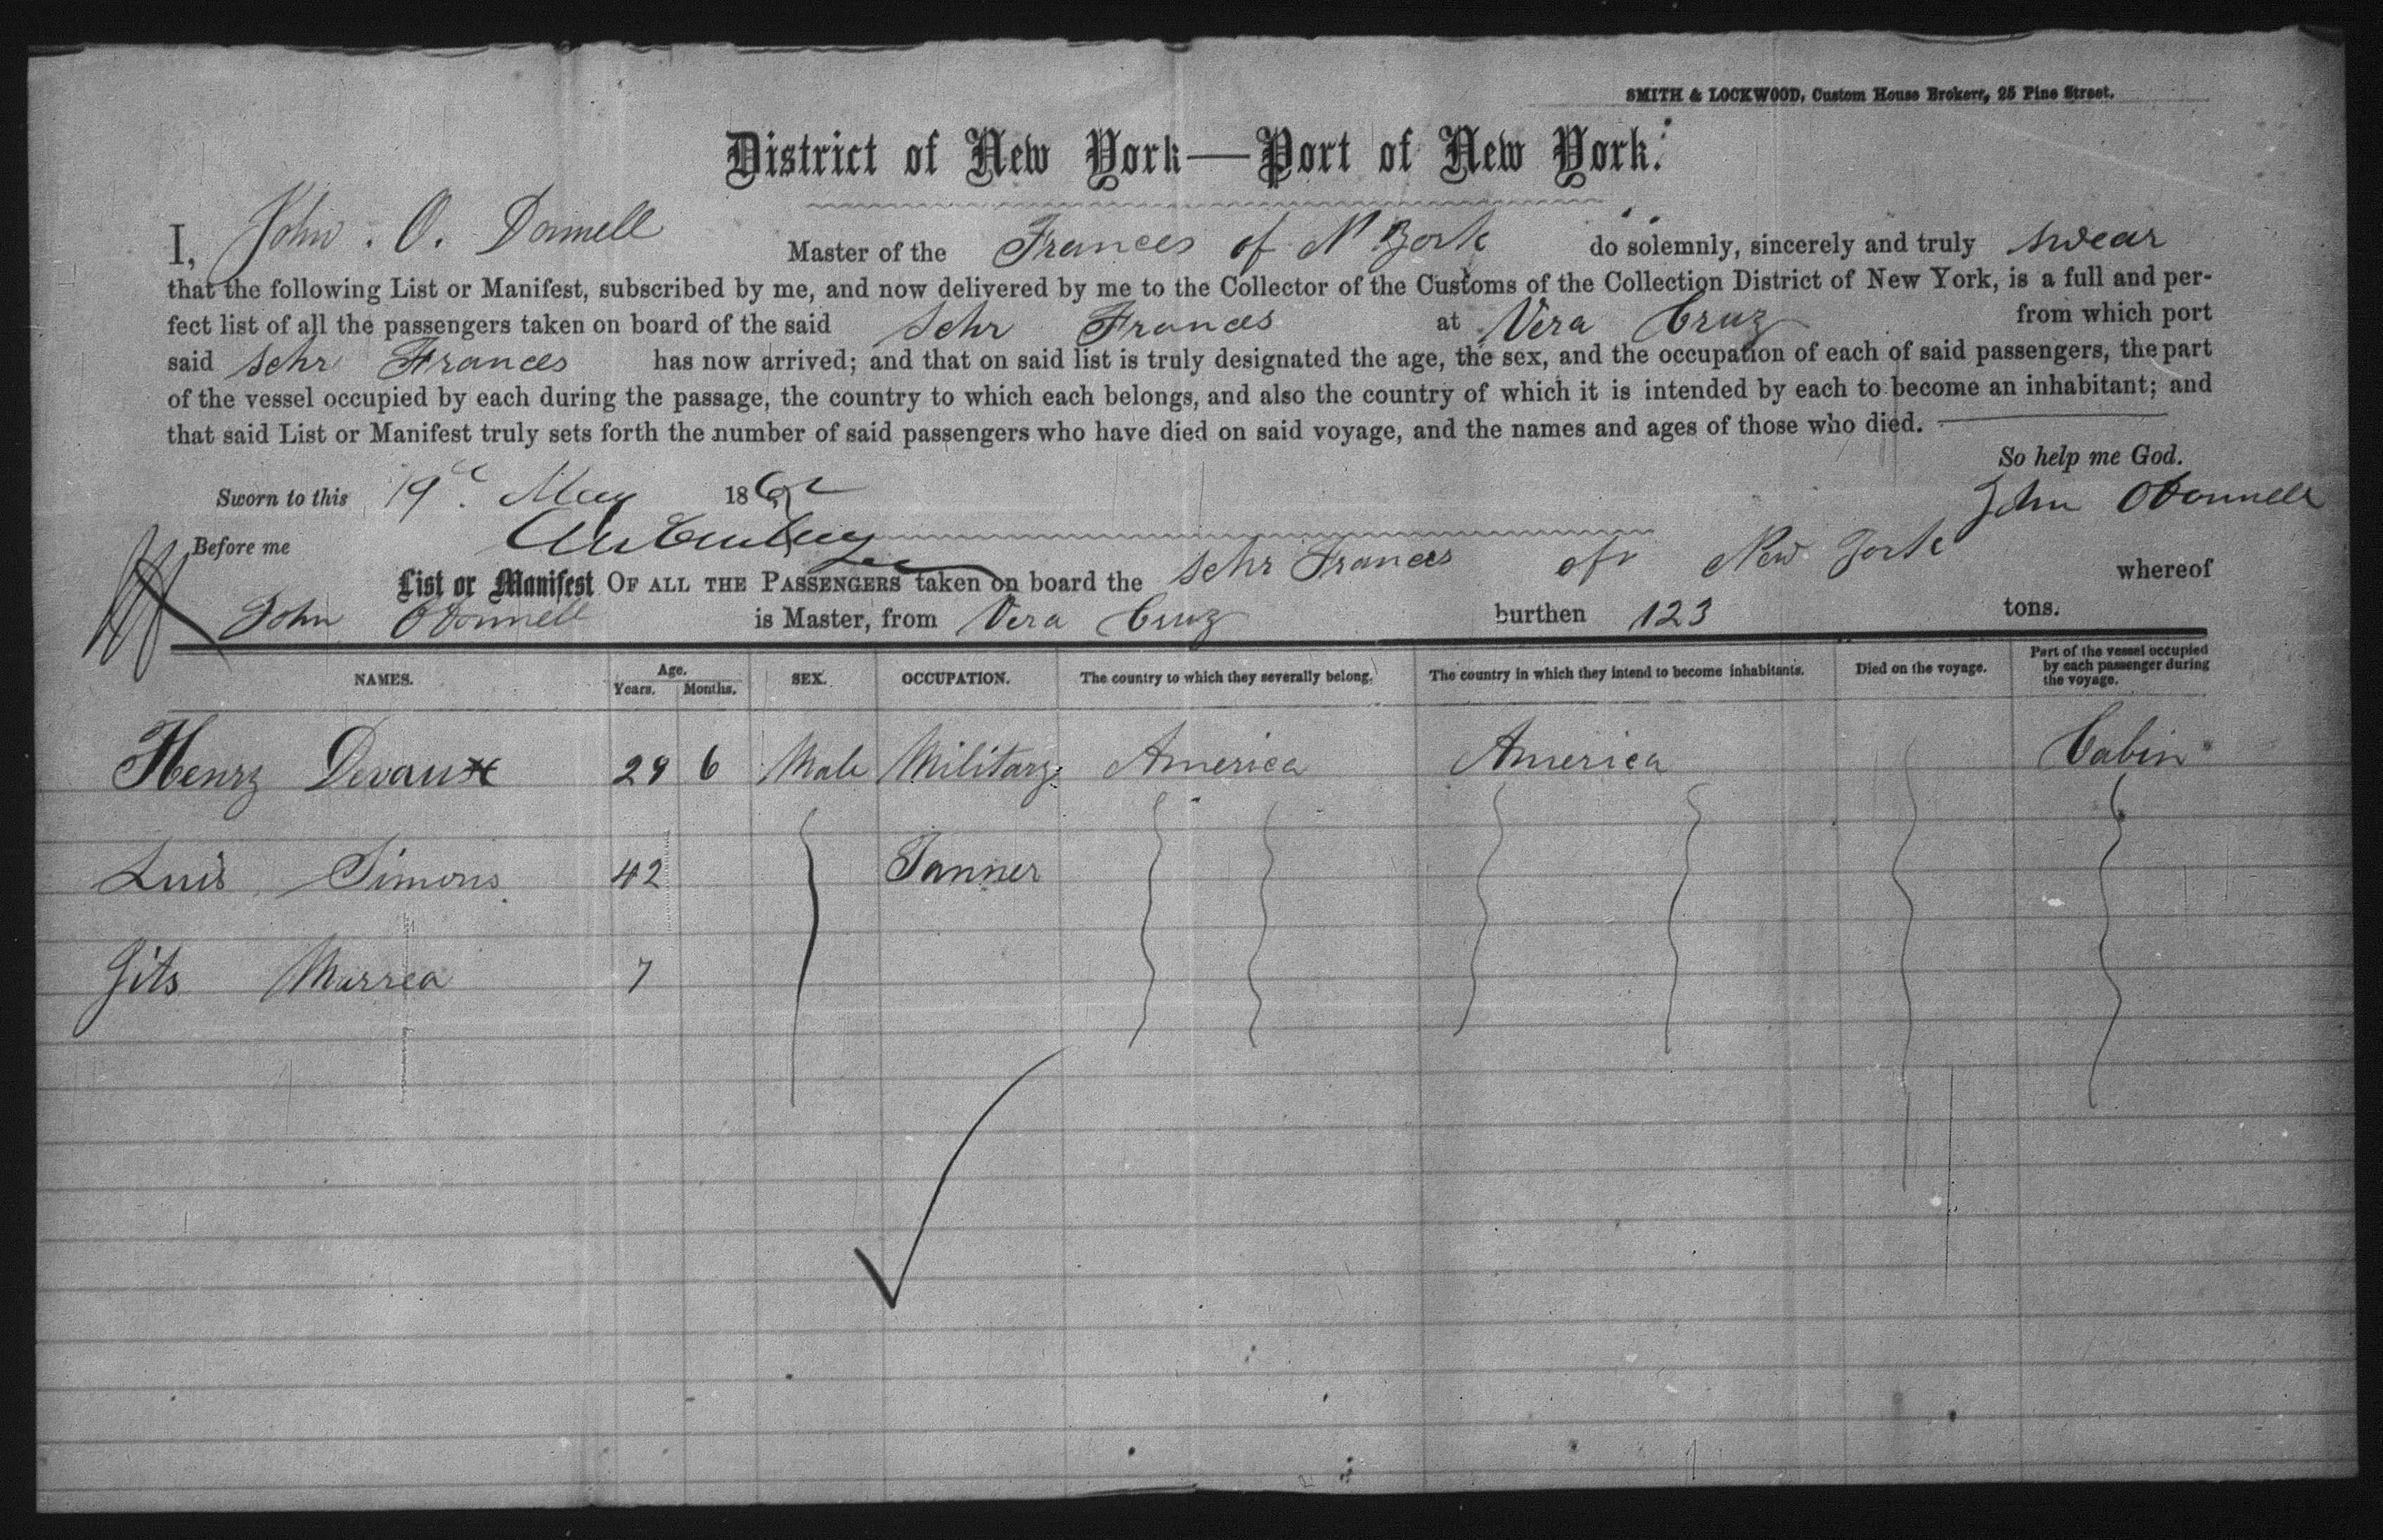 SMITH & LOCKWOOD, Custom House Brokers, 25 Pine Street.
District of New York—Port of New York.
I, John. O. Donnell Master of the Frances of N York do solemnly, sincerely and truly swear
that the following List or Manifest, subscribed by me, and now delivered by me to the Collector of the Customs of the Collection District of New York, is a full and per-
fect list of all the passengers taken on board of the said Schr Frances at Vera Cruz from which port
said Schr Frances has now arrived; and that on said list is truly designated the age, the sex, and the occupation of each of said passengers, the part
of the vessel occupied by each during the passage, the country to which each belongs, and also the country of which it is intended by each to become an inhabitant; and
that said List or Manifest truly sets forth the number of said passengers who have died on said voyage, and the names and ages of those who died.
So help me God.
Sworn to this 19 May 1862
John ODonnell
Before me
List or Manifest OF ALL THE PASSENGERS taken on board the Schr Frances of New York whereof
John ODonnell is Master, from Vera Cruz burthen 123 tons.
NAMES. Age. Years. Months. SEX. OCCUPATION. The country to which they severally belong. The country in which they intend to become inhabitants. Died on the voyage. Part of the vessel occupied by each passenger during the voyage.
Henry Devaux 29 6 Male Military America America Cabin
Luis Simons 42 Tanner
Gits Murrea 7